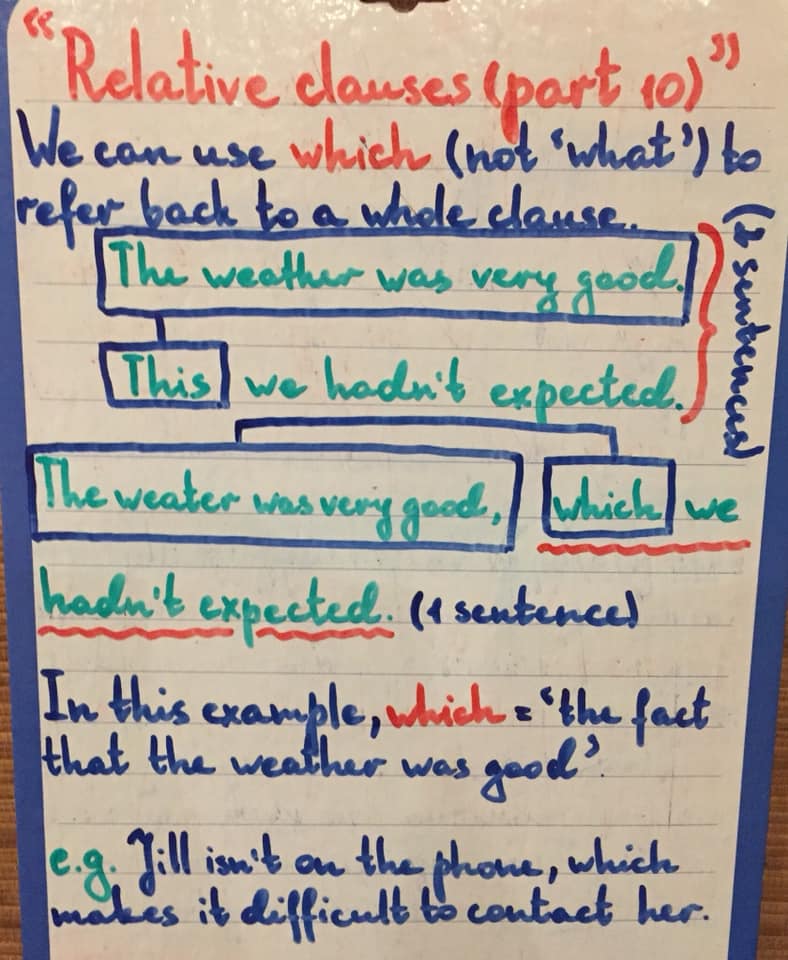 “Relative clauses (part 10)”
We can use which (not ‘what’) to
refer back to a whole clause.
The weather was very good.
This we hadn't expected.
(2 sentences)
The weater was very good, which we
hadn't expected. (1 sentence)
In this example, which = ‘the fact
that the weather was good’.
e.g. Jill isn't on the phone, which
makes it difficult to contact her.